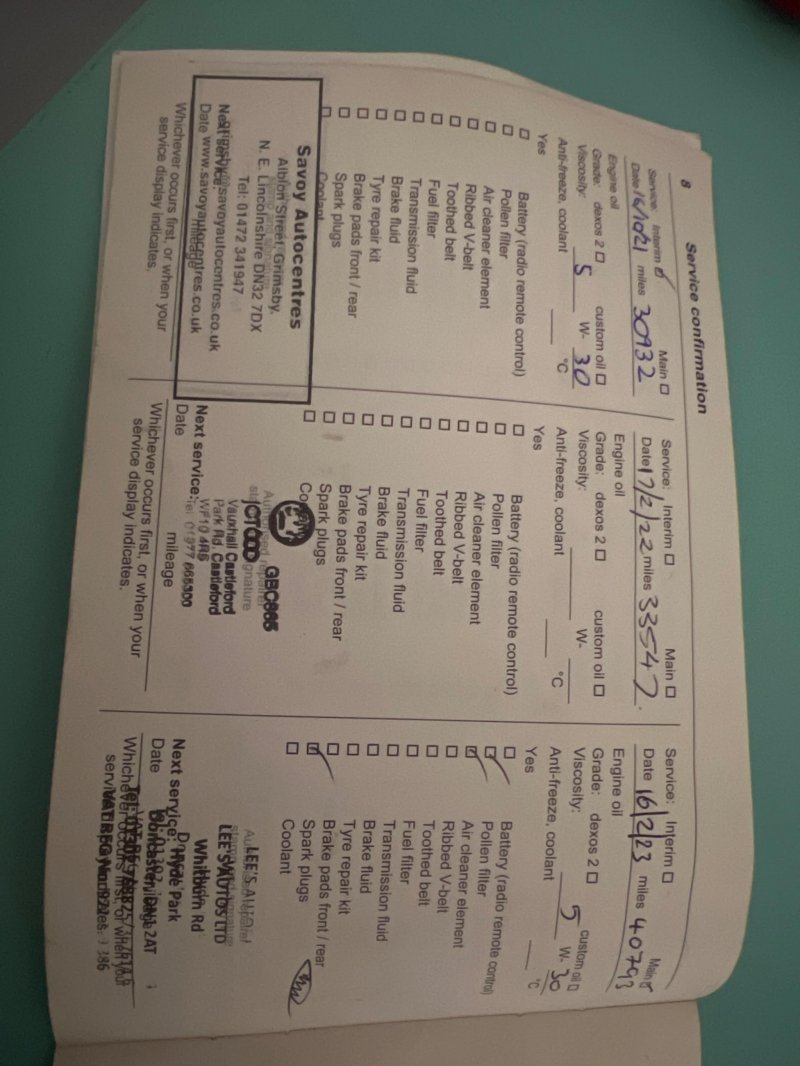 8
Service confirmation
Service: Interim ☑ Main ☐
Date 16/10/21 miles 30932
Engine oil
Grade: dexos 2 ☐ custom oil ☐
Viscosity: 5 W- 30
Anti-freeze, coolant °C
Yes
☐ Battery (radio remote control)
☐ Pollen filter
☐ Air cleaner element
☐ Ribbed V-belt
☐ Toothed belt
☐ Fuel filter
☐ Transmission fluid
☐ Brake fluid
☐ Tyre repair kit
☐ Brake pads front / rear
☐ Spark plugs
☐ Coolant
Savoy Autocentres
Albion Street, Grimsby,
N. E. Lincolnshire DN32 7DX
Tel: 01472 341947
grimsby@savoyautocentres.co.uk
www.savoyautocentres.co.uk
Next service:
Date mileage
Whichever occurs first, or when your
service display indicates.
Service: Interim ☐ Main ☐
Date 17/2/22 miles 33547
Engine oil
Grade: dexos 2 ☐ custom oil ☐
Viscosity: W-
Anti-freeze, coolant °C
Yes
☐ Battery (radio remote control)
☐ Pollen filter
☐ Air cleaner element
☐ Ribbed V-belt
☐ Toothed belt
☐ Fuel filter
☐ Transmission fluid
☐ Brake fluid
☐ Tyre repair kit
☐ Brake pads front / rear
☐ Spark plugs
☐ Coolant
GBC865
Vauxhall Castleford
Park Rd, Castleford
WF10 4RS
Tel: 01977 668300
Next service:
Date mileage
Whichever occurs first, or when your
service display indicates.
Service: Interim ☐ Main ☑
Date 16/2/23 miles 40793
Engine oil
Grade: dexos 2 ☐ custom oil ☐
Viscosity: 5 W- 30
Anti-freeze, coolant °C
Yes
☐ Battery (radio remote control)
☑ Pollen filter
☑ Air cleaner element
☐ Ribbed V-belt
☐ Toothed belt
☐ Fuel filter
☐ Transmission fluid
☐ Brake fluid
☐ Tyre repair kit
☐ Brake pads front / rear
☑ Spark plugs
☐ Coolant
LEE'S AUTOS LTD
Whitburn Rd
Hyde Park
Doncaster, DN1 2AT
Next service:
Date
Whichever occurs first, or when your